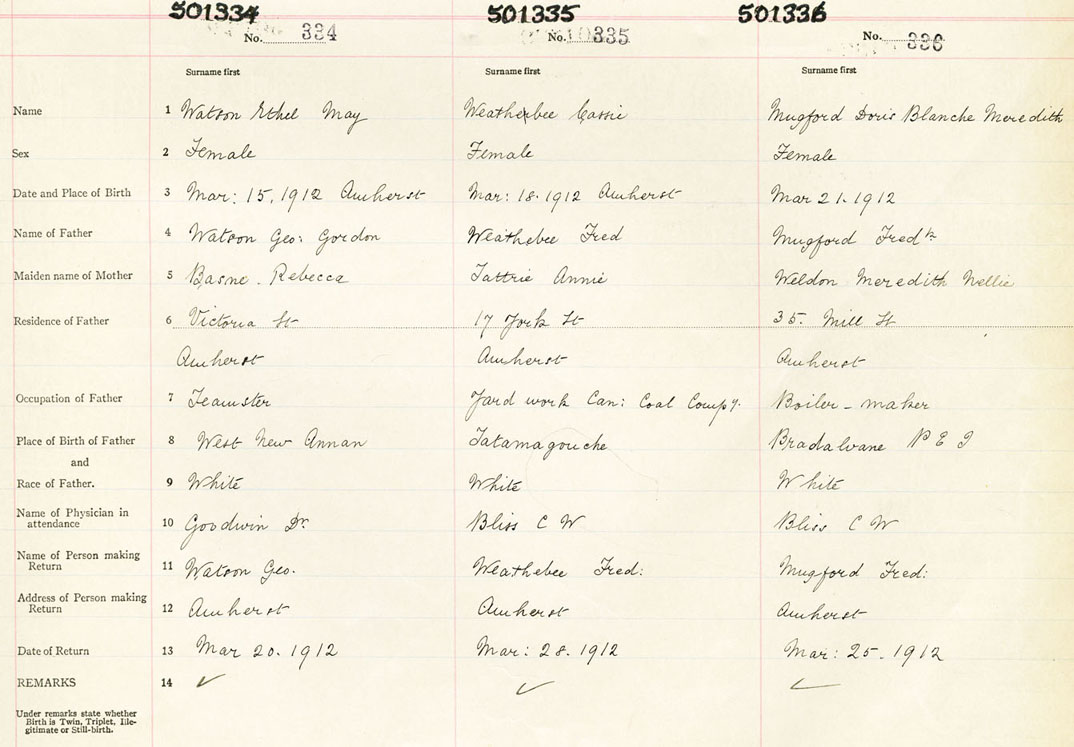 501334 501335 501336
No. 334 No. 335 No. 336
Surname first Surname first Surname first
Name 1 Watson Ethel May Weatherbee Cassie Mugford Doris Blanche Meredith
Sex 2 Female Female Female
Date and Place of Birth 3 Mar: 15, 1912 Amherst Mar: 18. 1912 Amherst Mar 21. 1912
Name of Father 4 Watson Geo: Gordon Weathebee Fred Mugford Fredk
Maiden name of Mother 5 Basne. Rebecca Tattrie Annie Weldon Meredith Nellie
Residence of Father 6 Victoria St 17 York St 35. Mill St
Amherst Amherst Amherst
Occupation of Father 7 Teamster Yard work Can: Coal Compy. Boiler-maker
Place of Birth of Father 8 West New Annan Tatamagouche Bradalvane P E I
and
Race of Father. 9 White White White
Name of Physician in
attendance 10 Goodwin Dr Bliss C W Bliss C W
Name of Person making
Return 11 Watson Geo. Weathebee Fred: Mugford Fred:
Address of Person making
Return 12 Amherst Amherst Amherst
Date of Return 13 Mar 20. 1912 Mar: 28. 1912 Mar: 25. 1912
REMARKS 14 ✓ ✓ ✓
Under remarks state whether
Birth is Twin, Triplet, Ille-
gitimate or Still-birth.